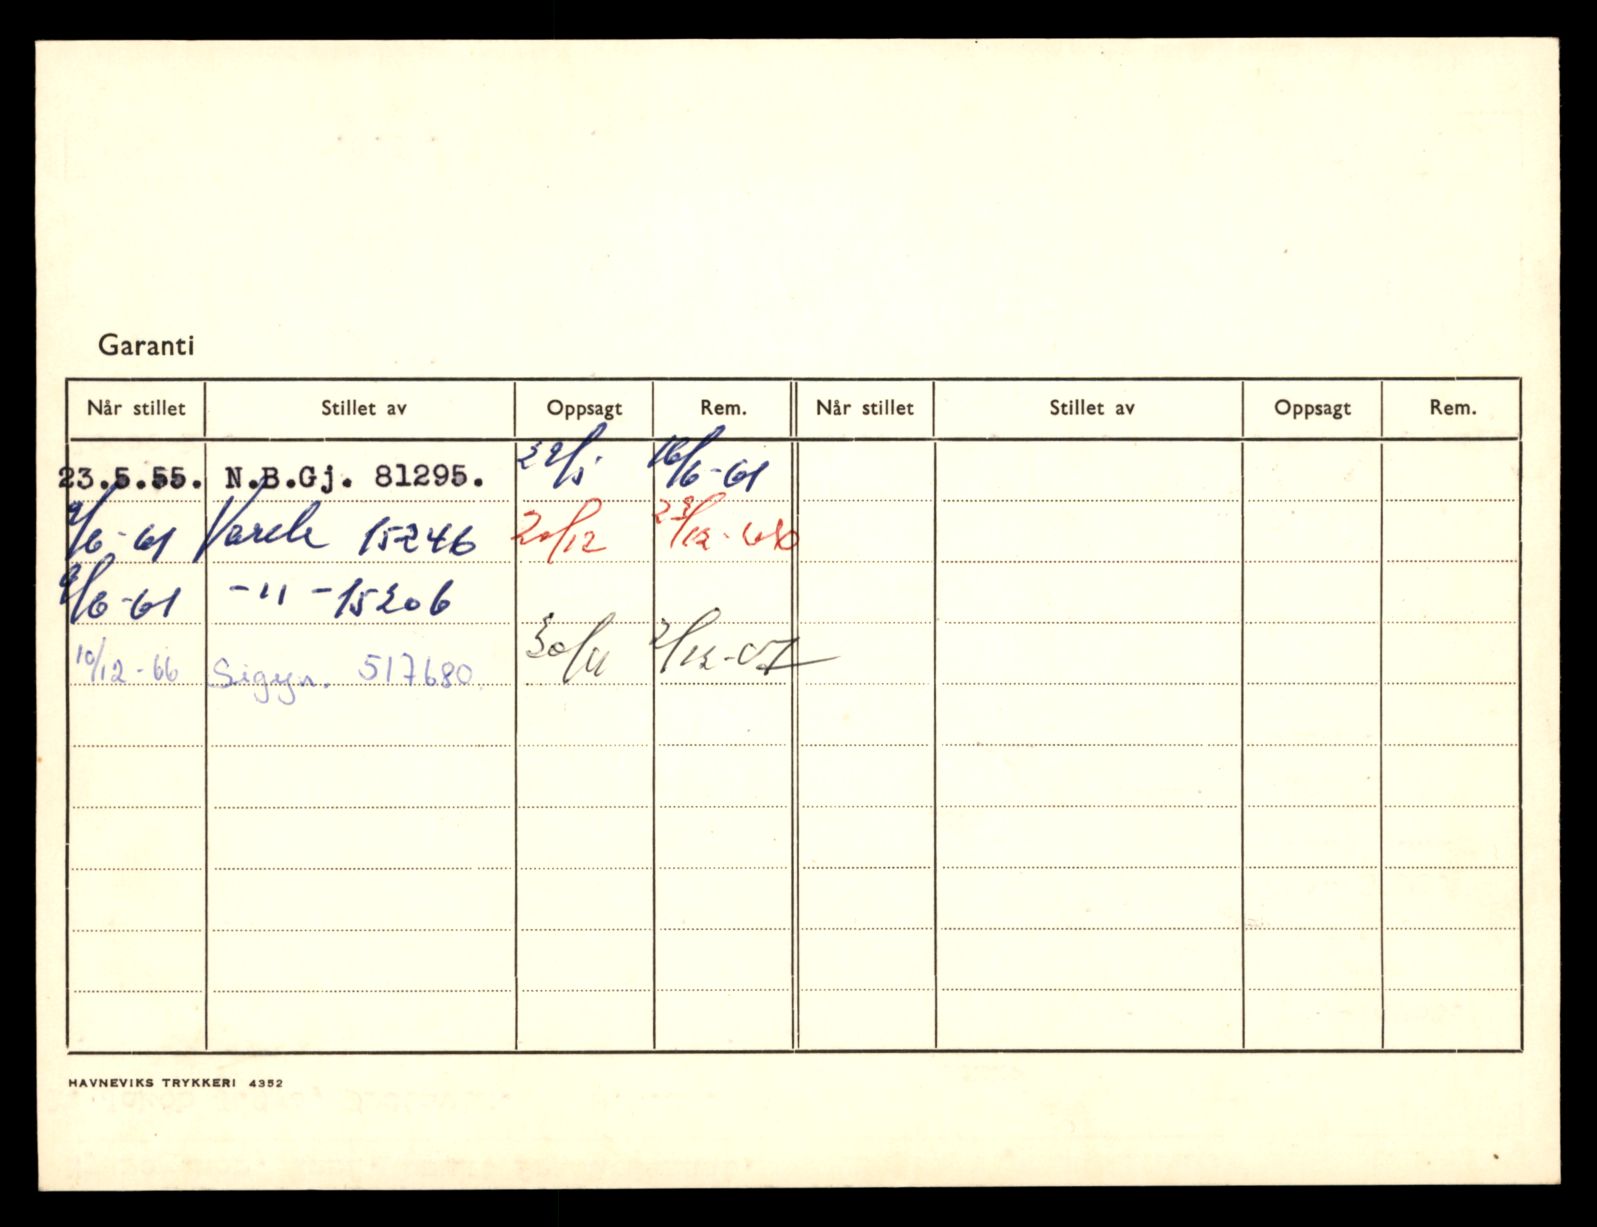 Garanti
Når stillet Stillet av Oppsagt Rem. Når stillet Stillet av Oppsagt Rem.
23.5.55. N.B.Gj. 81295. 29/5 16/6-61
9/6-61 15246 20/12 23/12-
9/6-61 -"- 15206
10/12-66 Sigyn. 517680 30/11 2/12-
HAVNEVIKS TRYKKERI 4352